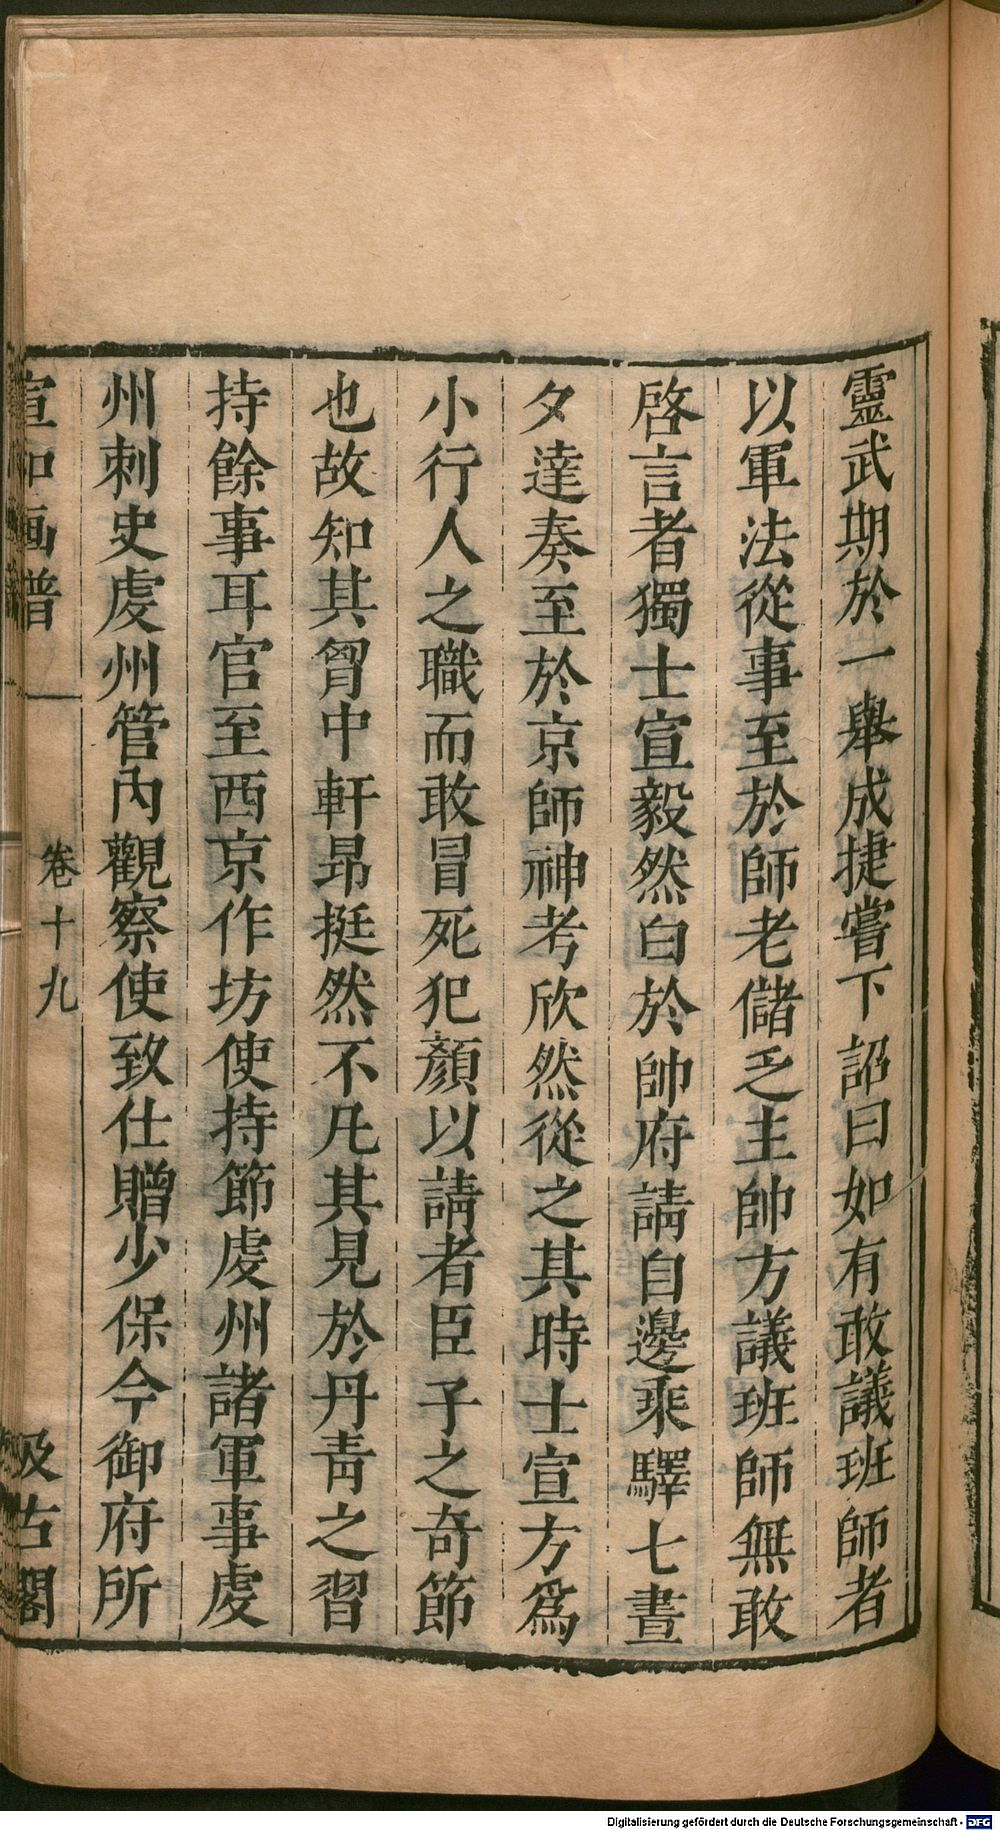 靈武期於一舉成捷嘗下詔曰如有敢議班師者
以軍法從事至於師老儲乏主帥方議班師無敢
啓言者獨士宣毅然白於帥府請自邊乘驛七晝
夕達奏至於京師神考欣然從之其時士宣方爲
小行人之職而敢冒死犯顏以請者臣子之奇節
也故知其胷中軒昂挺然不凡其見於丹靑之習
持餘事耳官至西京作坊使持節虔州諸軍事虔
州刺史虔州管內觀察使致仕贈少保今御府所
宣和画譜
卷十九
汲古閣
Digitalisierung gefördert durch die Deutsche Forschungsgemeinschaft - DFG